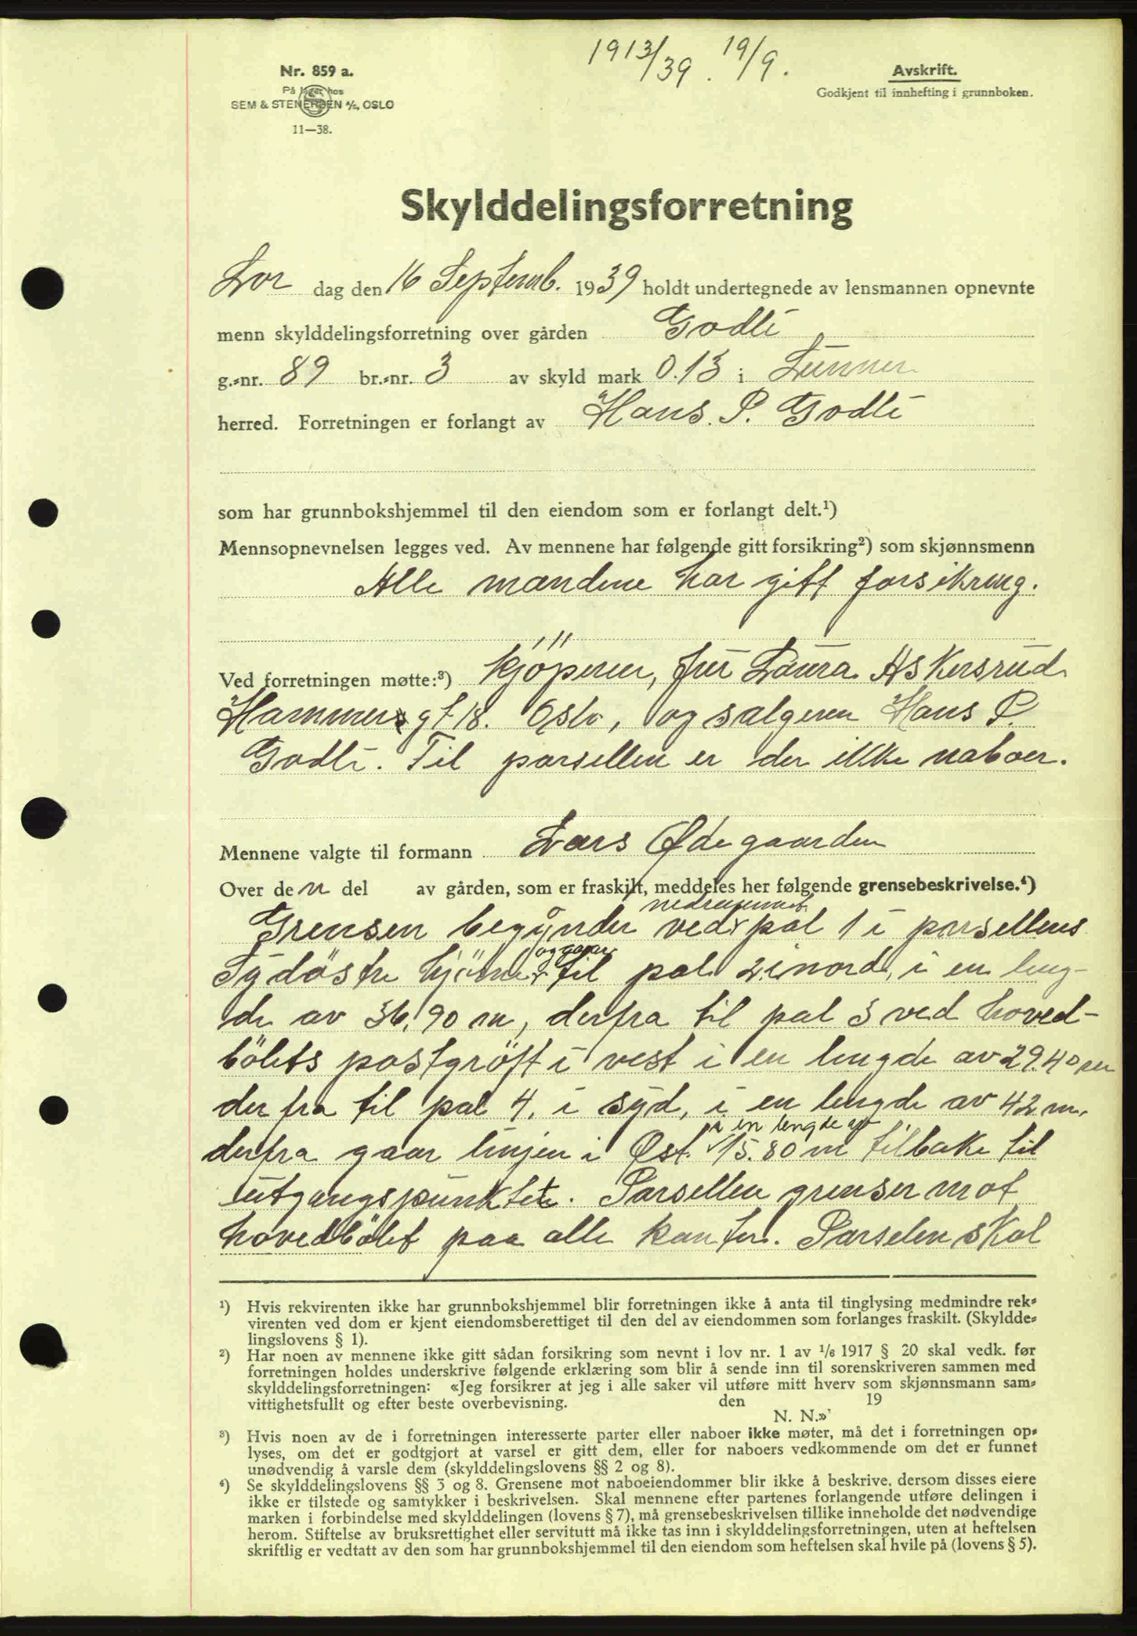 1913/39. 19/9.
Nr. 859 a.
På lager hos
SEM & STENERSEN A/S, OSLO
11—38.
Avskrift.
Godkjent til innhefting i grunnboken.
Skylddelingsforretning
Lør dag den 16 Septemb. 1939 holdt undertegnede av lensmannen opnevnte
menn skylddelingsforretning over gården Godli
g.-nr. 89 br.-nr. 3 av skyld mark 0.13 i Lunner
herred. Forretningen er forlangt av Hans. P. Godli
som har grunnbokshjemmel til den eiendom som er forlangt delt.¹)
Mennsopnevnelsen legges ved. Av mennene har følgende gitt forsikring²) som skjønnsmenn
Alle mændene har gitt forsikring.
Ved forretningen møtte:³) Kjöperen, fru Laura Askersrud
Hammersgt. 18. Oslo, og sælgeren Hans P.
Godli. Til parsellen er der ikke naboer.
Mennene valgte til formann Lars Ødegaarden
Over den del av gården, som er fraskilt, meddeles her følgende grensebeskrivelse.⁴)
Grensen begynder ved nedrammet pal 1 i parsellens
Sydöstre hjörne og gaar til pal 2 i nord, i en leng-
de av 36,90 m, derfra til pal 3 ved hoved-
bölets postgröft i vest i en lengde av 29.40 m
derfra til pal 4. i syd, i en lengde av 42 m,
derfra gaar linjen i Øst i en lengde av 15.80 m tilbake til
utgangspunktet. Parsellen grenser mot
hovedbölet paa alle kanter. Parselen skal
¹) Hvis rekvirenten ikke har grunnbokshjemmel blir forretningen ikke å anta til tinglysing medmindre rek-
virenten ved dom er kjent eiendomsberettiget til den del av eiendommen som forlanges fraskilt. (Skyldde-
lingslovens § 1).
²) Har noen av mennene ikke gitt sådan forsikring som nevnt i lov nr. 1 av 1/6 1917 § 20 skal vedk. før
forretningen holdes underskrive følgende erklæring som blir å sende inn til sorenskriveren sammen med
skylddelingsforretningen: «Jeg forsikrer at jeg i alle saker vil utføre mitt hverv som skjønnsmann sam-
vittighetsfullt og efter beste overbevisning. den 19
N. N.»'
³) Hvis noen av de i forretningen interesserte parter eller naboer ikke møter, må det i forretningen op-
lyses, om det er godtgjort at varsel er gitt dem, eller for naboers vedkommende om det er funnet
unødvendig å varsle dem (skylddelingslovens §§ 2 og 8).
⁴) Se skylddelingslovens §§ 3 og 8. Grensene mot naboeiendommer blir ikke å beskrive, dersom disses eiere
ikke er tilstede og samtykker i beskrivelsen. Skal mennene efter partenes forlangende utføre delingen i
marken i forbindelse med skylddelingen (lovens § 7), må grensebeskrivelsen tillike inneholde det nødvendige
herom. Stiftelse av bruksrettighet eller servitutt må ikke tas inn i skylddelingsforretningen, uten at heftelsen
skriftlig er vedtatt av den som har grunnbokshjemmel til den eiendom som heftelsen skal hvile på (lovens § 5).